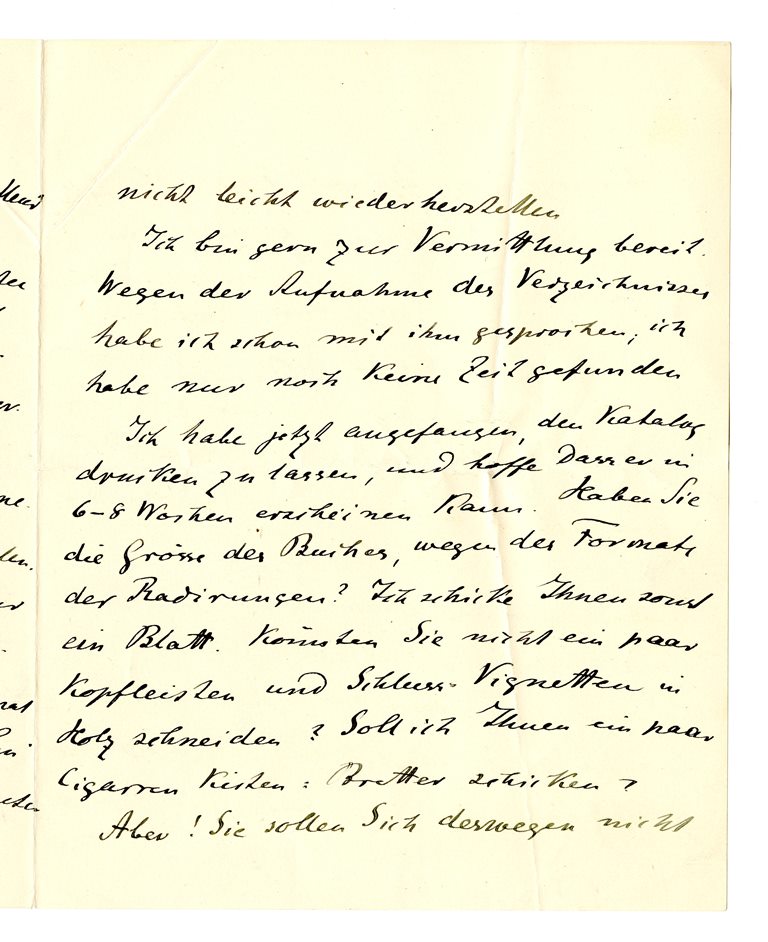 nicht leicht wiederherstellen
Ich bin gern zur Vermittlung bereit.
Wegen der Aufnahme des Verzeichnisses
habe ich schon mit ihm gesprochen, ich
habe nur noch keine Zeit gefunden
Ich habe jetzt angefangen, den Katalog
drucken zu lassen, und hoffe dass er in
6-8 Wochen erscheinen kann. Haben Sie
die Grösse des Buches, wegen des Formats
der Radirungen? Ich schicke Ihnen sonst
ein Blatt. Könnten Sie nicht ein paar
Kopfleisten und Schluss-Vignetten in
Holz schneiden? Soll ich Ihnen ein paar
Cigarren Kisten-Bretter schicken?
Aber! Sie sollen Sich deswegen nicht